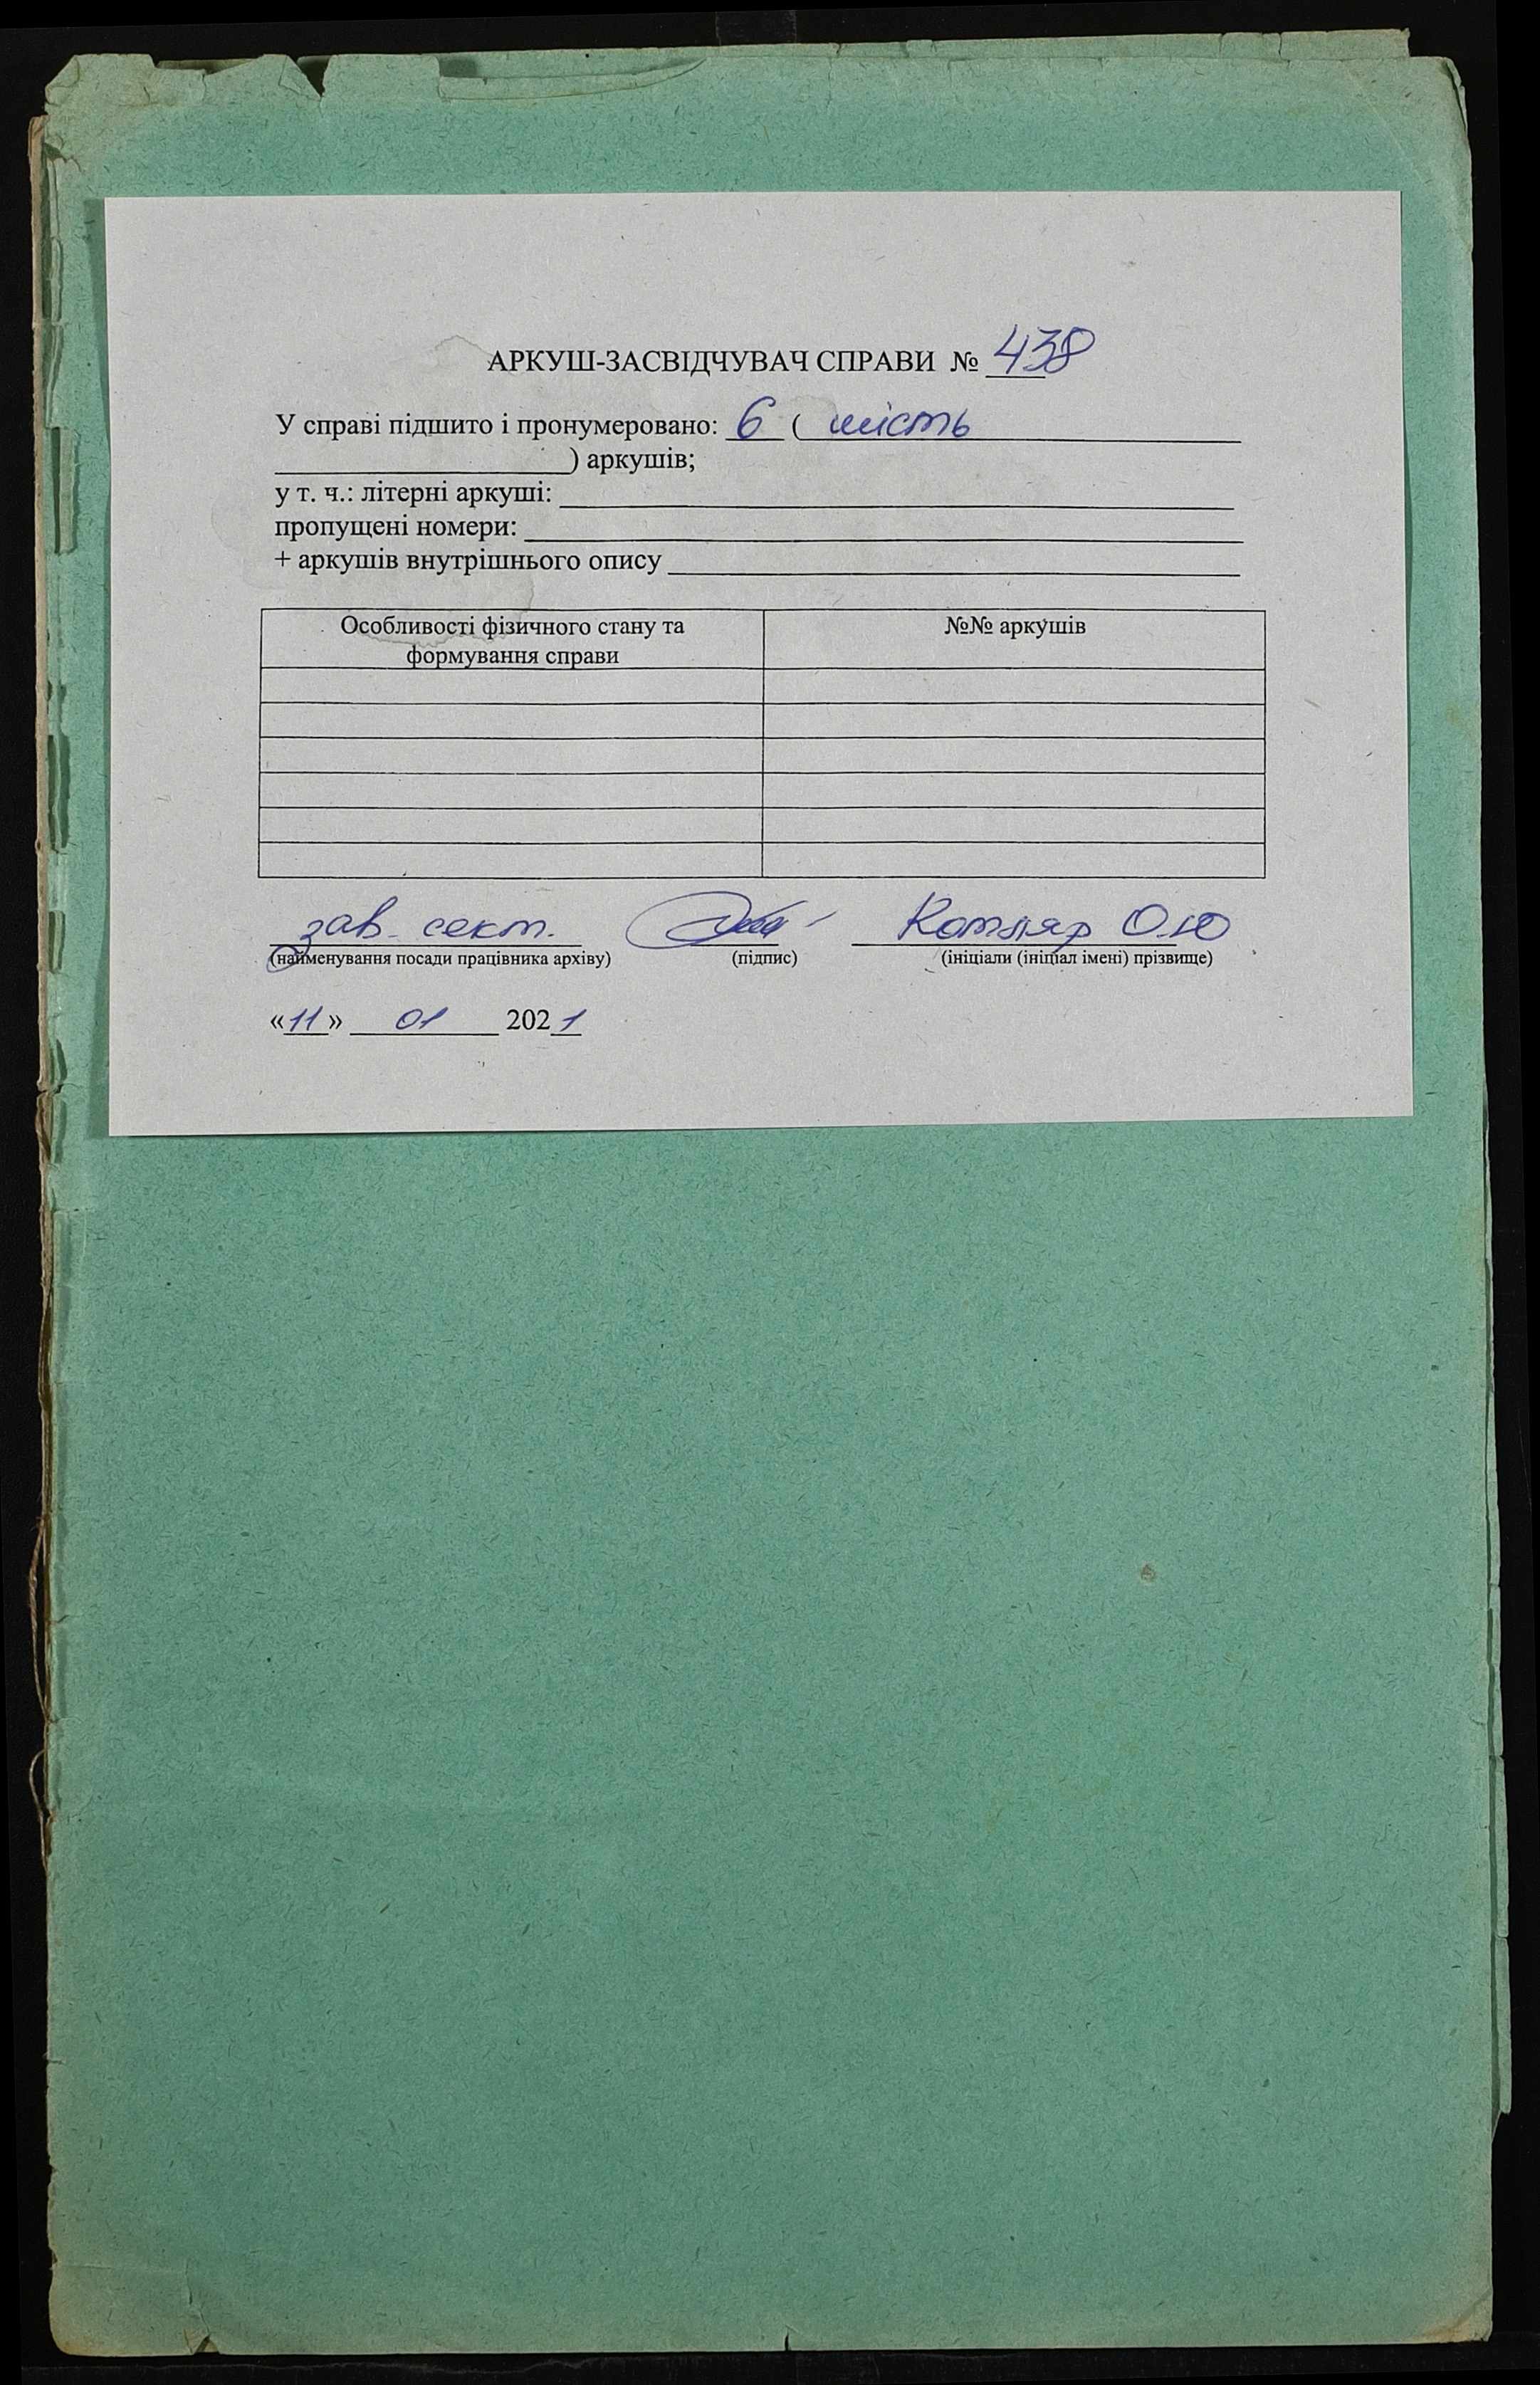 АРКУШ-ЗАСВІДЧУВАЧ СПРАВИ № 438
У справі підшито і пронумеровано: 6 ( шість
) аркушів;
у т. ч.: літерні аркуші:
пропущені номери:
+ аркушів внутрішнього опису
Особливості фізичного стану та формування справи
№№ аркушів
зав. сект. Котляр О.Ю
(найменування посади працівника архіву) (підпис) (ініціали (ініціал імені) прізвище)
«11» 01 2021